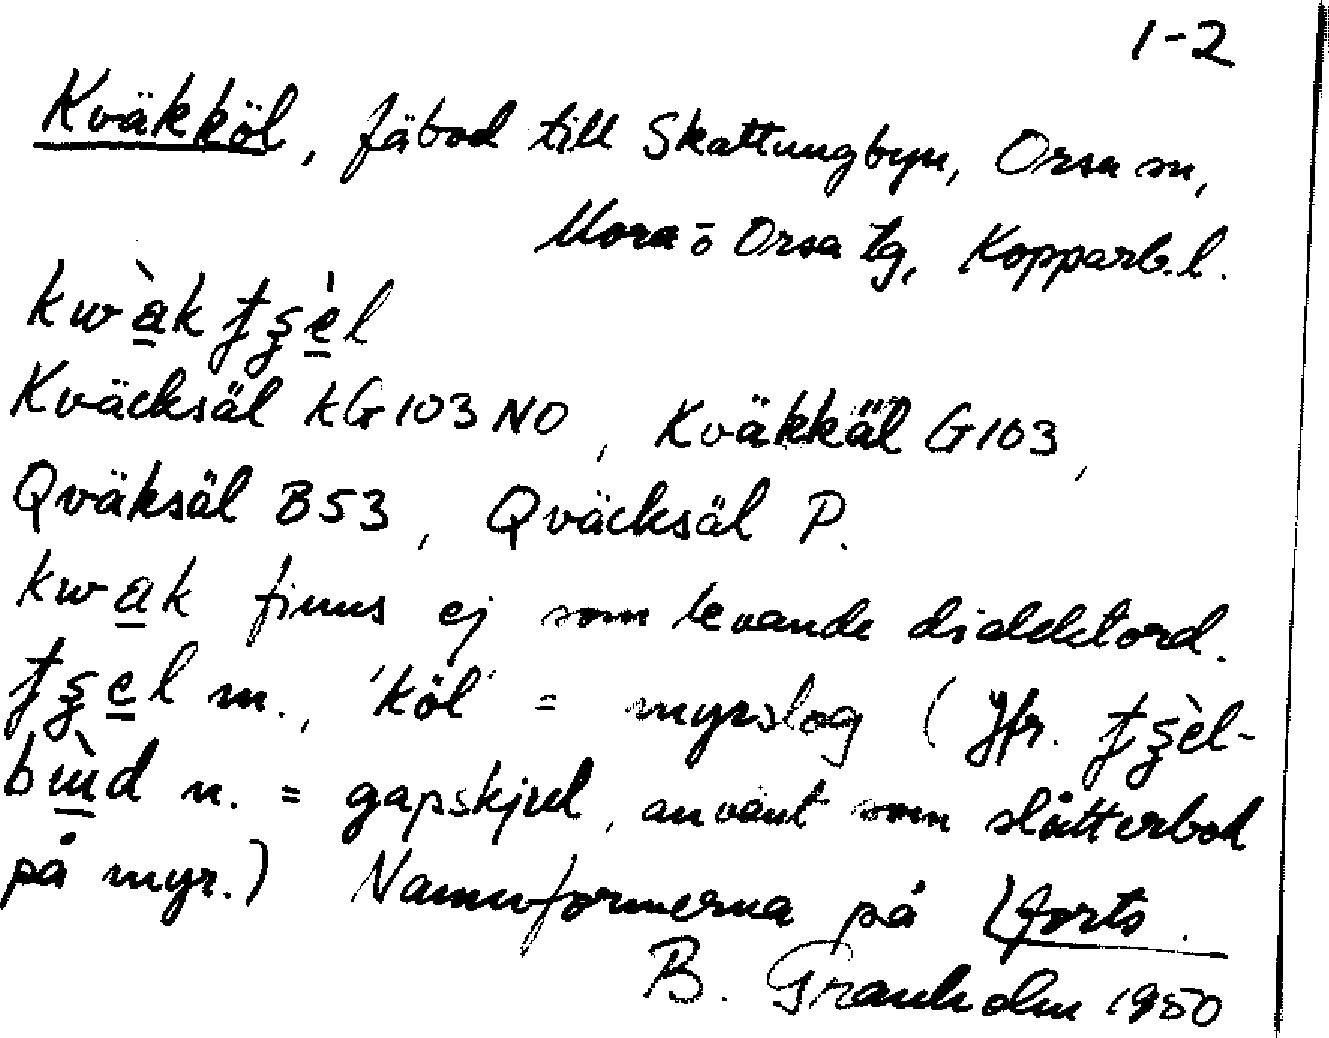 1-2
Kväkköl, fäbod till Skattungbyn, Orsa sn,
Mora o Orsa tg, Kopparb.l.
kwàk
Kväcksäl kG103 NO, Kväkkäl G103,
Qväksäl B53, Qväcksäl P.
kwak finns ej som levande dialektord.
m., 'köl' = myrslog (Jfr.
n. = gapskjul, använt som slåtterbod
på myr.) Namnformerna på (forts.
B. Granholm 1950